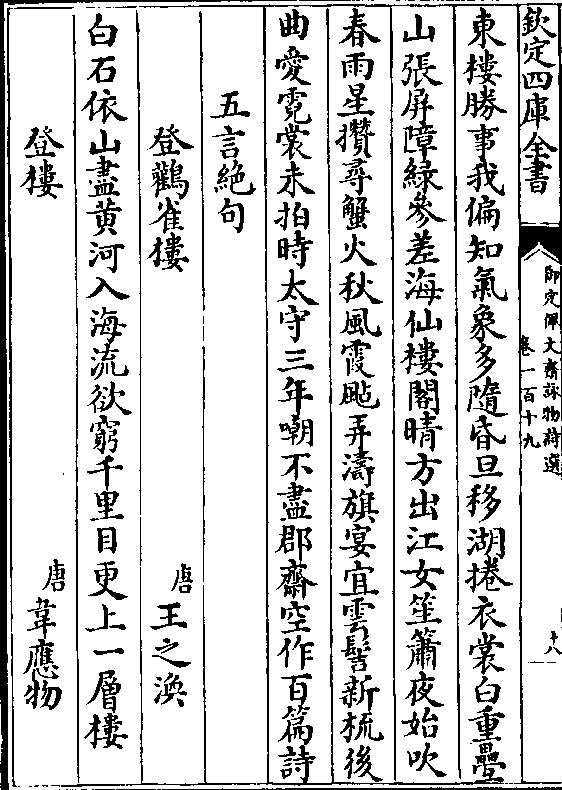 欽定四庫全書
御定佩文齋詠物詩選
卷一百十九
十八
東樓勝事我偏知氣象多隨昏旦移湖捲衣裳白重疊
山張屏障綠參差海仙樓閣晴方出江女笙簫夜始吹
春雨星攢尋蟹火秋風霞颭弄濤旗宴宜雲髻新梳後
曲愛霓裳未拍時太守三年嘲不盡郡齋空作百篇詩
五言絶句
登鸛雀樓
唐王之渙
白石依山盡黄河入海流欲窮千里目更上一層樓
登樓
唐韋應物